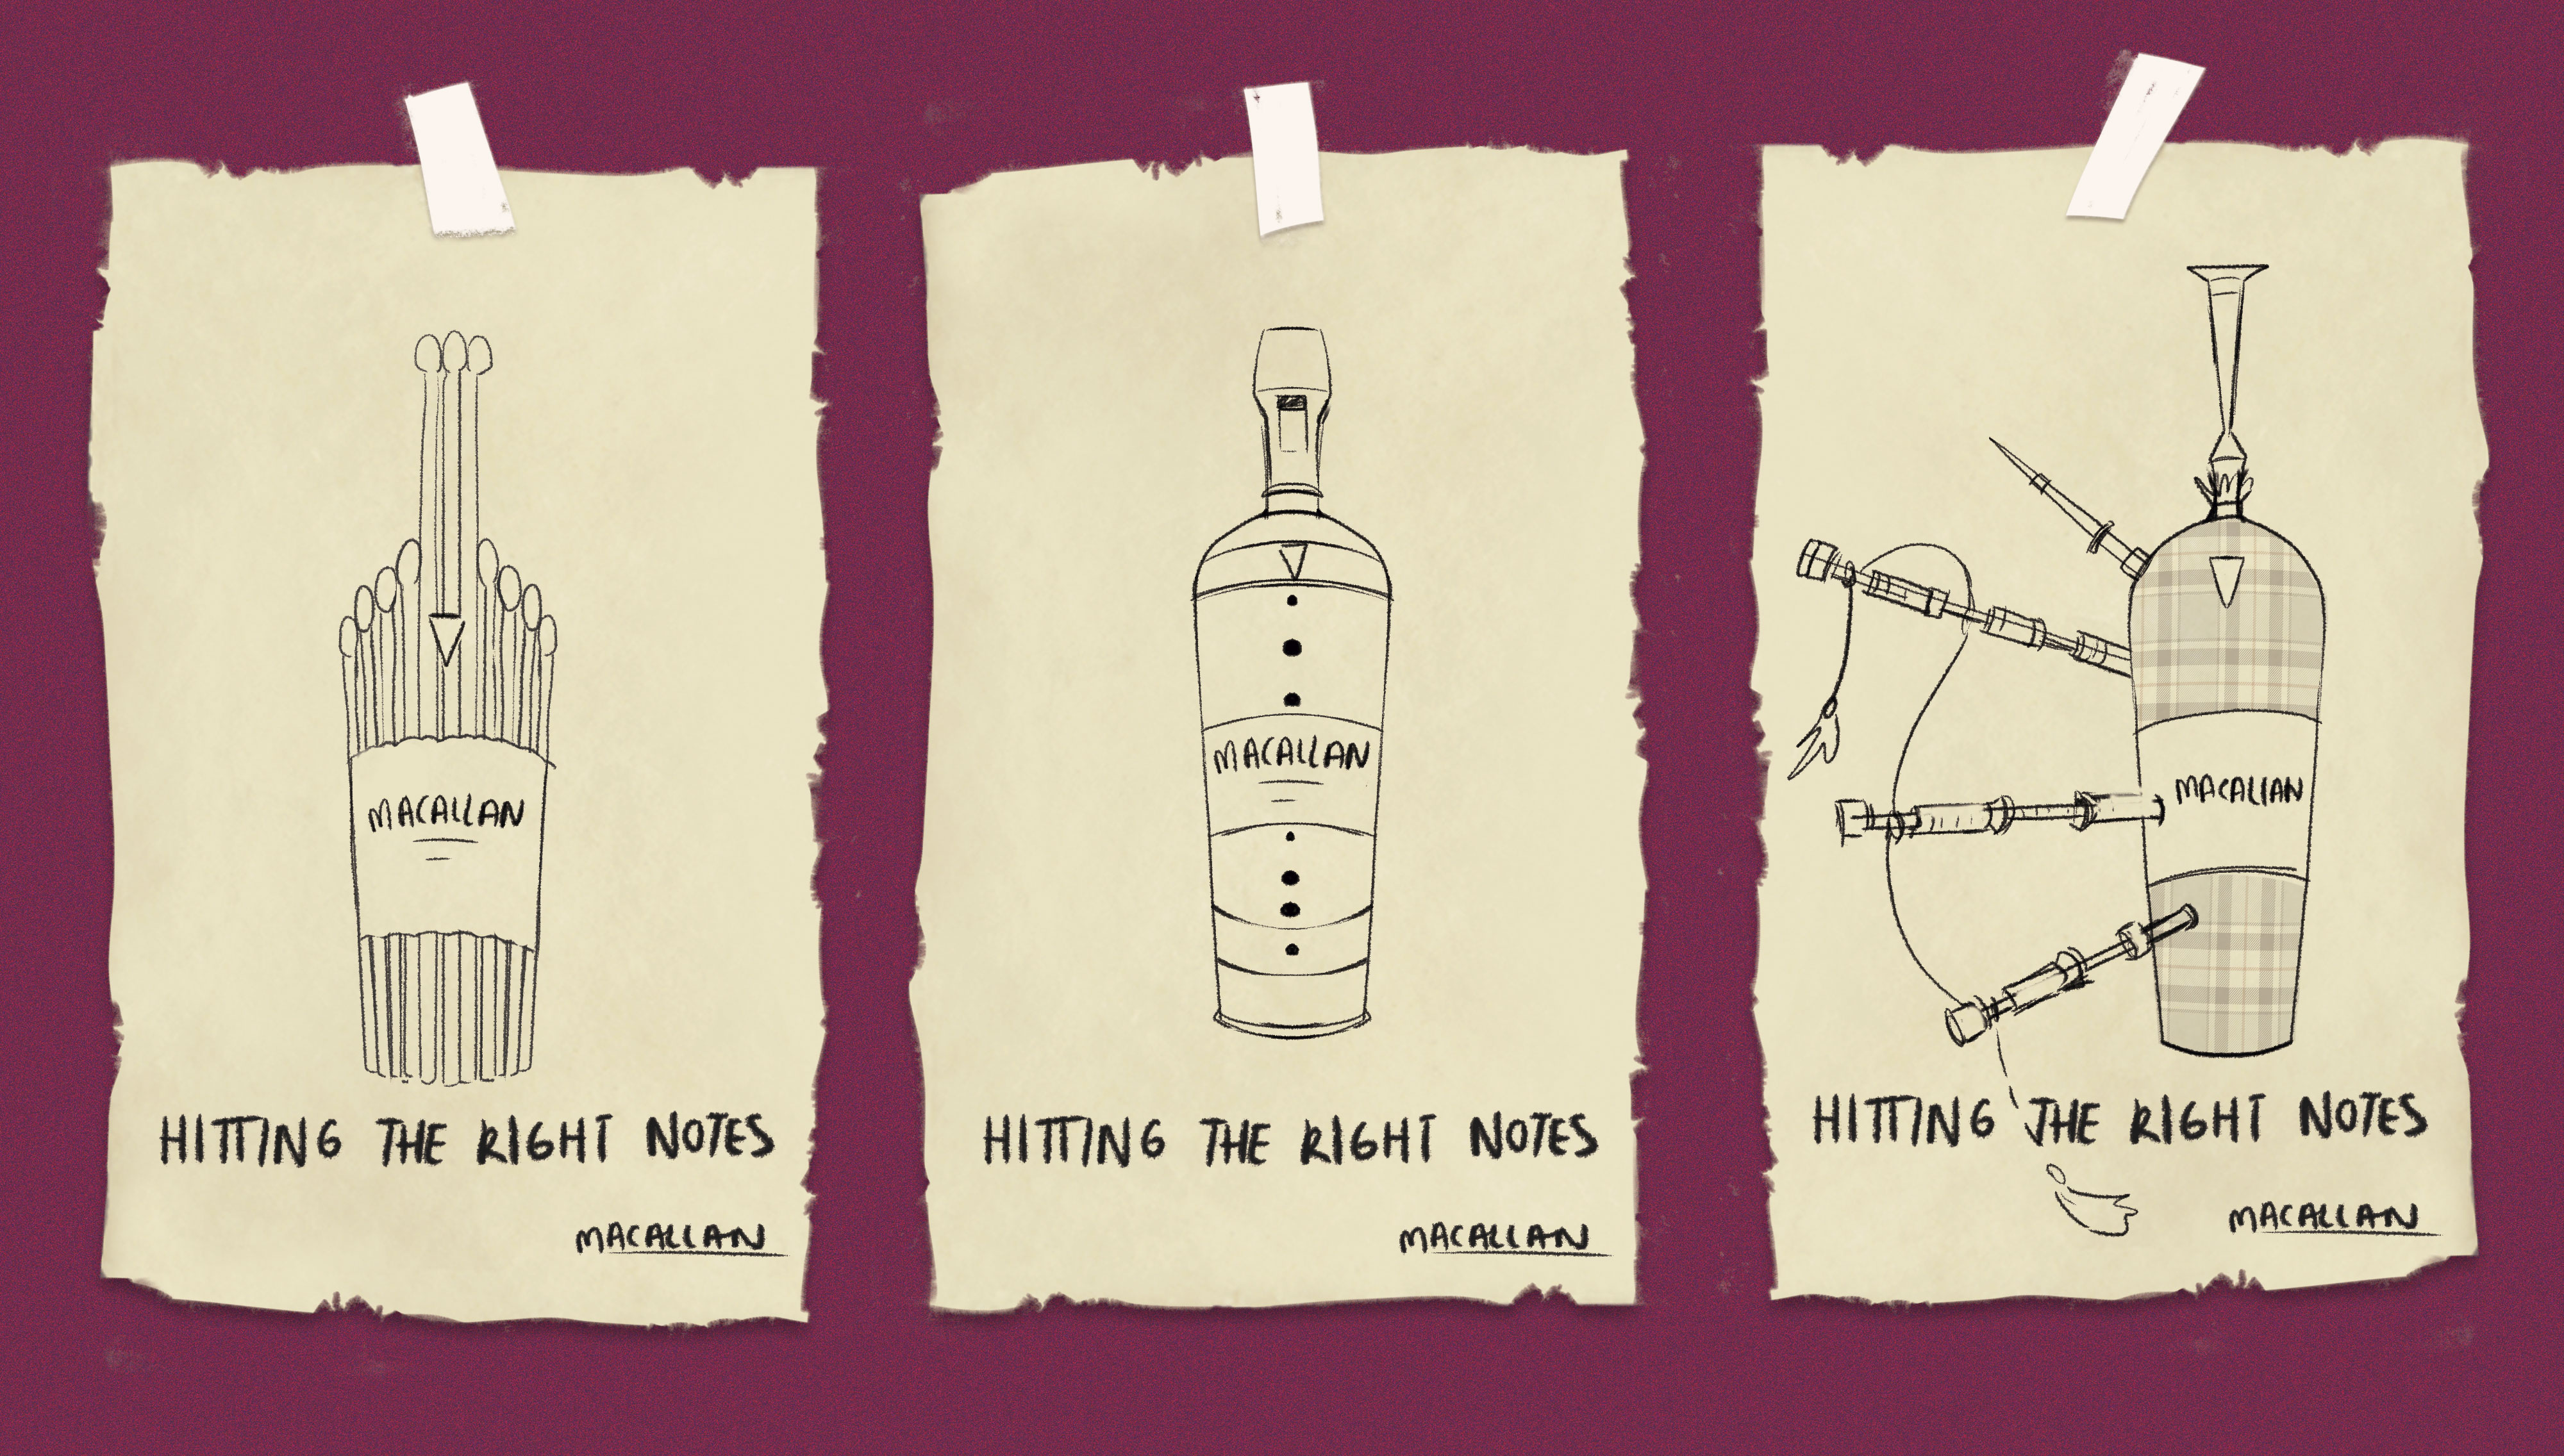 MACALLAN
HITTING THE RIGHT NOTES
MACALLAN
MACALLAN
HITTING THE RIGHT NOTES
MACALLAN
MACALLAN
HITTING THE RIGHT NOTES
MACALLAN